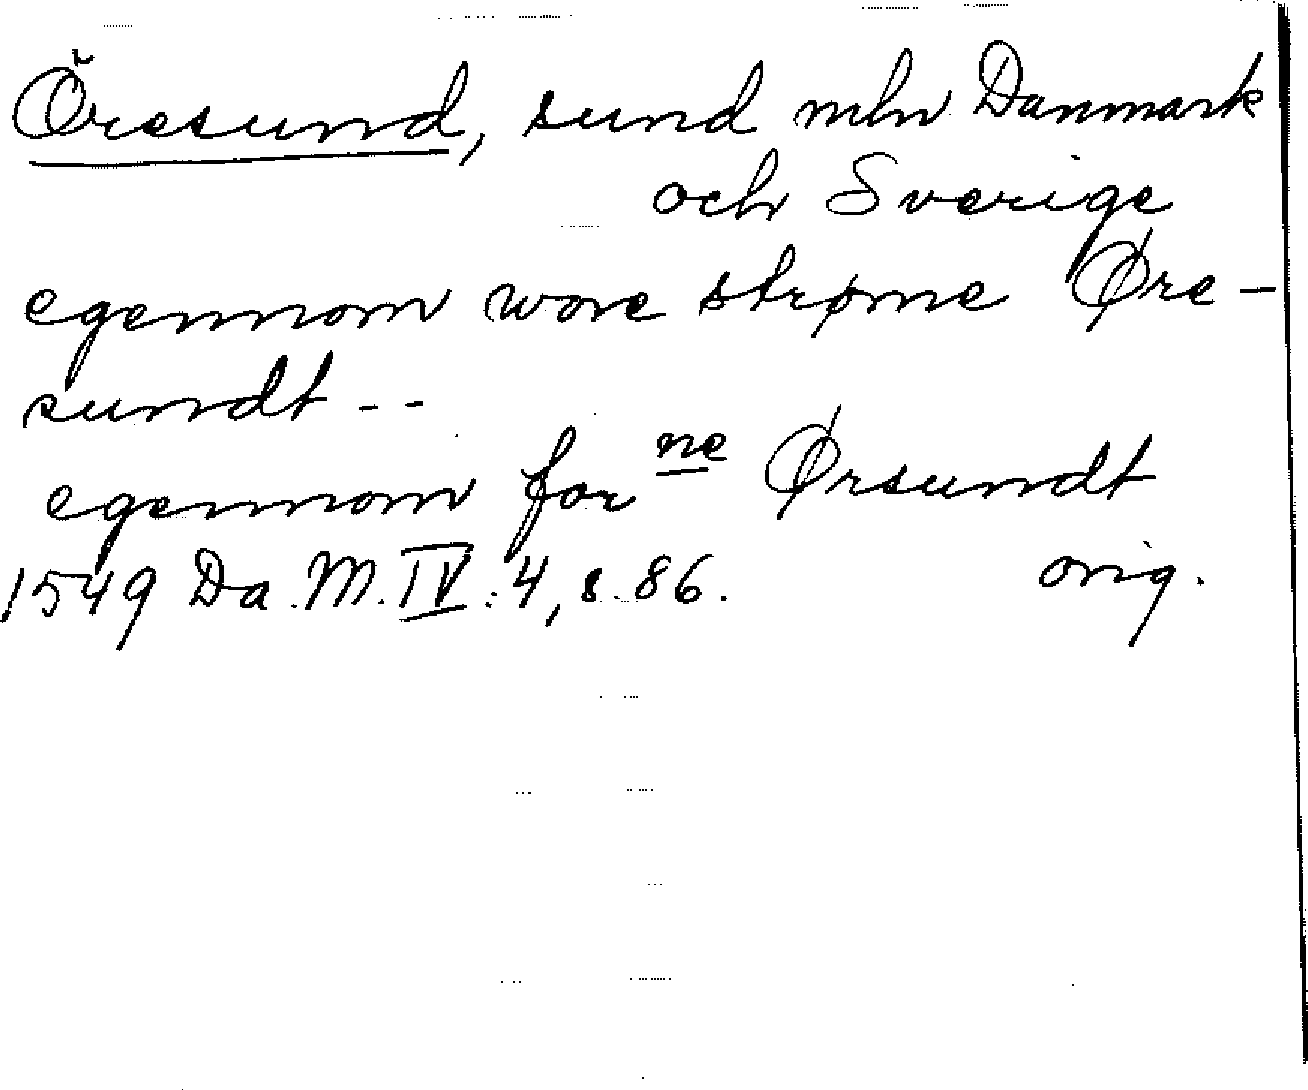 Öresund, sund mln Danmark
och Sverige
egennom wore strøme Øre-
sundt --
egennom for ne Ørsundt
1549 Da. M. IV: 4, s. 86. orig.